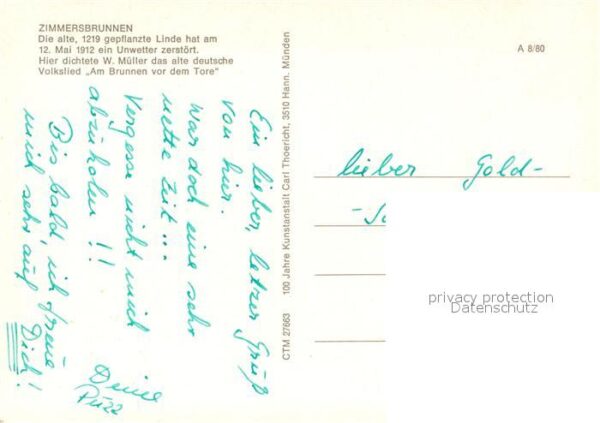 ZIMMERSBRUNNEN
Die alte, 1219 gepflanzte Linde hat am
12. Mai 1912 ein Unwetter zerstört.
Hier dichtete W. Müller das alte deutsche
Volkslied „Am Brunnen vor dem Tore"
A 8/80
Ein lieber, letzer Gruß
von hier.
War doch eine sehr
nette Zeit...
Vergesse nicht mich
abzuholen!!
Bis bald, ich freue
mich sehr auf
Dich!
Deine
CTM 27663 100 Jahre Kunstanstalt Carl Thoericht, 3510 Hann. Münden
lieber Gold-
privacy protection
Datenschutz